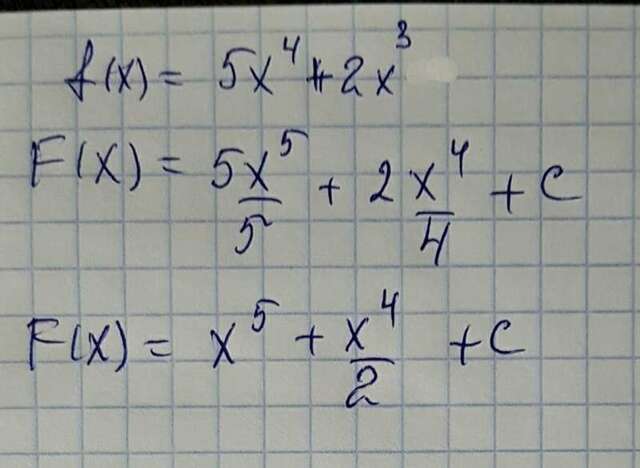 f(x) = 5x⁴ + 2x³
F(x) = 5x⁵/5 + 2x⁴/4 + C
F(x) = x⁵ + x⁴/2 + C